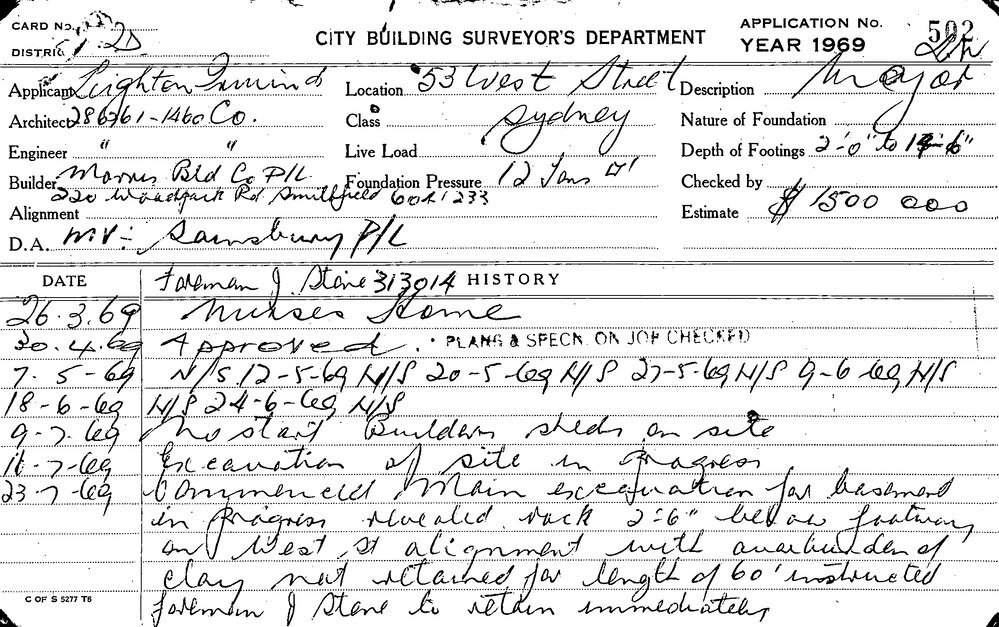 CARD No.
DISTRICT 2D
CITY BUILDING SURVEYOR'S DEPARTMENT
APPLICATION No. 502
YEAR 1969
Applicant Leighton
Location 53 West Street
Description Major
Architect 286761-1460 Co.
Class Sydney
Nature of Foundation
Engineer " "
Live Load
Depth of Footings 2'-0" to 14'-6"
Builder Morris Bld Co P/L
Foundation Pressure 12 Tons
Checked by
220 Woodpark Rd Smithfield 604 1233
Alignment
Estimate $1500 000
D.A. Sainsbury P/L
DATE
Foreman J Stone 313014 HISTORY
26.3.69 Nurses Home
30.4.69 Approved. PLANS & SPECN. ON JOB CHECKED
7-5-69 N/S 12-5-69 N/S 20-5-69 N/S 27-5-69 N/S 9-6-69 N/S
18-6-69 N/S 24-6-69 N/S
9-7-69 No start Builders sheds on site
11-7-69 Excavation of site in progress
23-7-69 Commenced Main excavation for basement
in progress revealed rock 2'-6" below footway
on West St alignment with overburden of
clay not retained for length of 60' instructed
foreman J Stone to retain immediately
C OF S 5277 T6